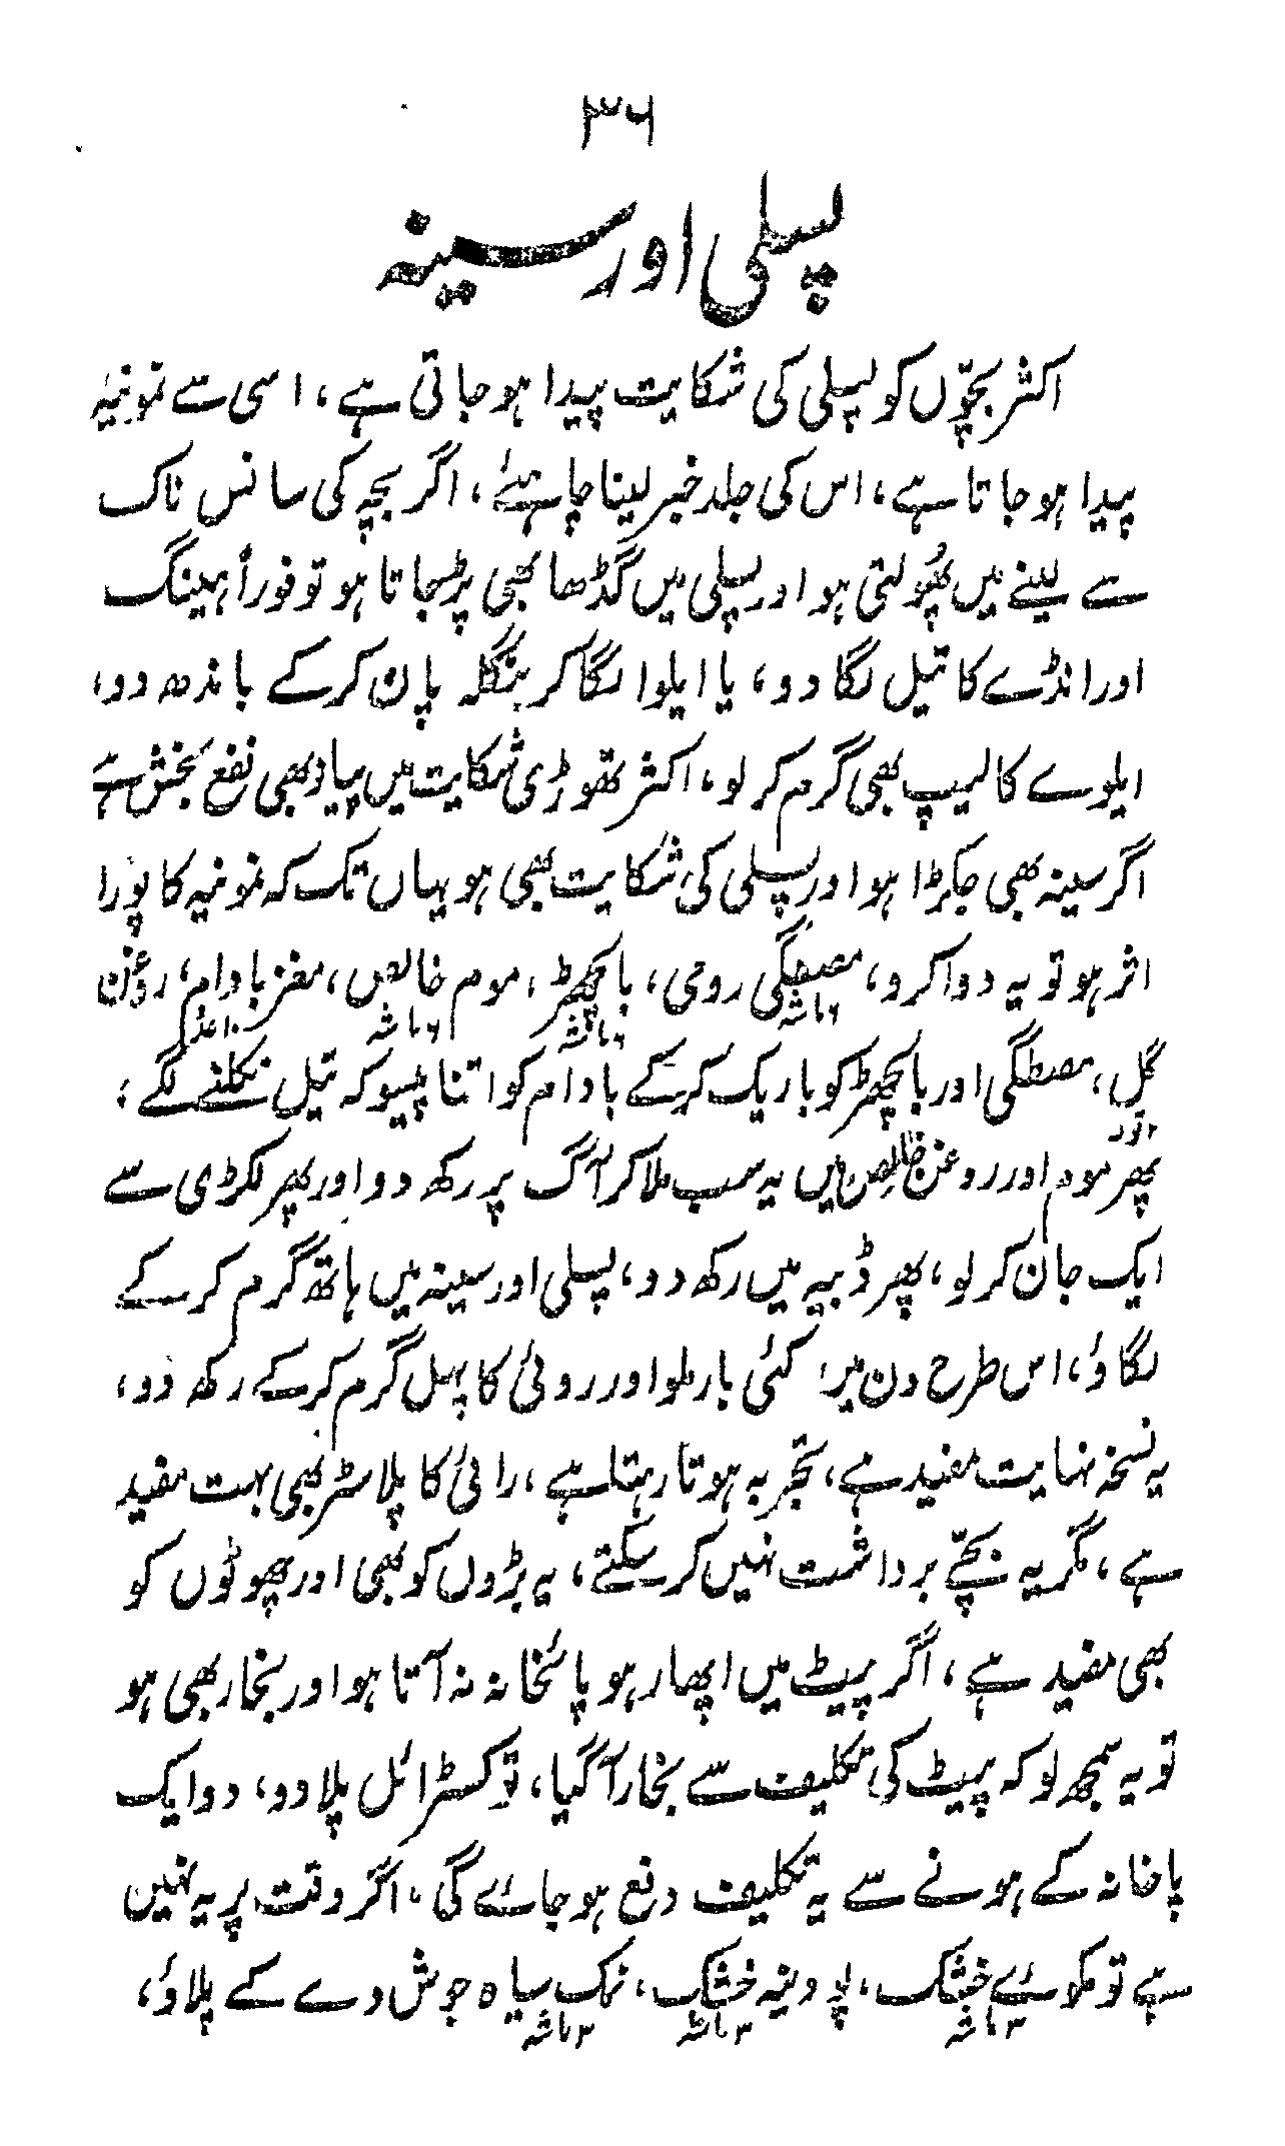 ۳۶
پسلی اور سینہ
اکثر بچّوں کو پسلی کی شکایت پیدا ہو جاتی ہے، اسی سے نمونیہ
پیدا ہو جاتا ہے، اس کی جلد خبر لینا چاہئے، اگر بچہ کی سانس ناک
سے لینے میں پھُولتی ہو اور پسلی میں گڈھا بھی پڑجاتا ہو تو فوراً ہینگ
اور انڈے کا تیل لگا دو، یا ایلوا لگا کر بنگلہ پان کرکے باندھ دو،
ایلوے کا لیپ بھی گرم کر لو، اکثر تھوڑی شکایت میں پیاز بھی نفع بخش ہے
اگر سینہ بھی جکڑا ہو اور پسلی کی شکایت بھی ہو یہاں تک کہ نمونیہ کا پورا
اثر ہو تو یہ دوا کرو، مصطگی رومی، بالچھڑ، موم خالص، مغز بادام، روغن
۶ماشہ ۶ماشہ ۶ماشہ ۱۰عدد
گل، مصطگی اور بالچھڑ کو باریک کرکے بادام کو اتنا پیسو کہ تیل نکلنے لگے،
پھر موم اور روغن خالص میں یہ سب ملا کر آگ پر رکھ دو اور پھر لکڑی سے
ایک جان کر لو، پھر ڈبیہ میں رکھ دو، پسلی اور سینہ میں ہاتھ گرم کرکے
لگاؤ، اس طرح دن میں کئی بار ملو اور روئی کا پہل گرم کرکے رکھ دو،
یہ نسخہ نہایت مفید ہے، تجربہ ہوتا رہتا ہے، رائی کا پلاسٹر بھی بہت مفید
ہے، مگر یہ بچّے برداشت نہیں کر سکتے، یہ بڑوں کو بھی اور چھوٹوں کو
بھی مفید ہے، اگر پیٹ میں اپھار ہو پائخانہ نہ آتا ہو اور بخار بھی ہو
تو یہ سمجھ لو کہ پیٹ کی تکلیف سے بخار آ گیا، تو کسٹرائل پلا دو، دو ایک
پاخانہ کے ہونے سے یہ تکلیف دفع ہو جائے گی، اگر وقت پر یہ نہیں
ہے تو مکوئے خشک، پودینہ خشک، نمک سیاہ جوش دے کے پلاؤ،
۳ماشہ ۳ماشہ ۳ماشہ